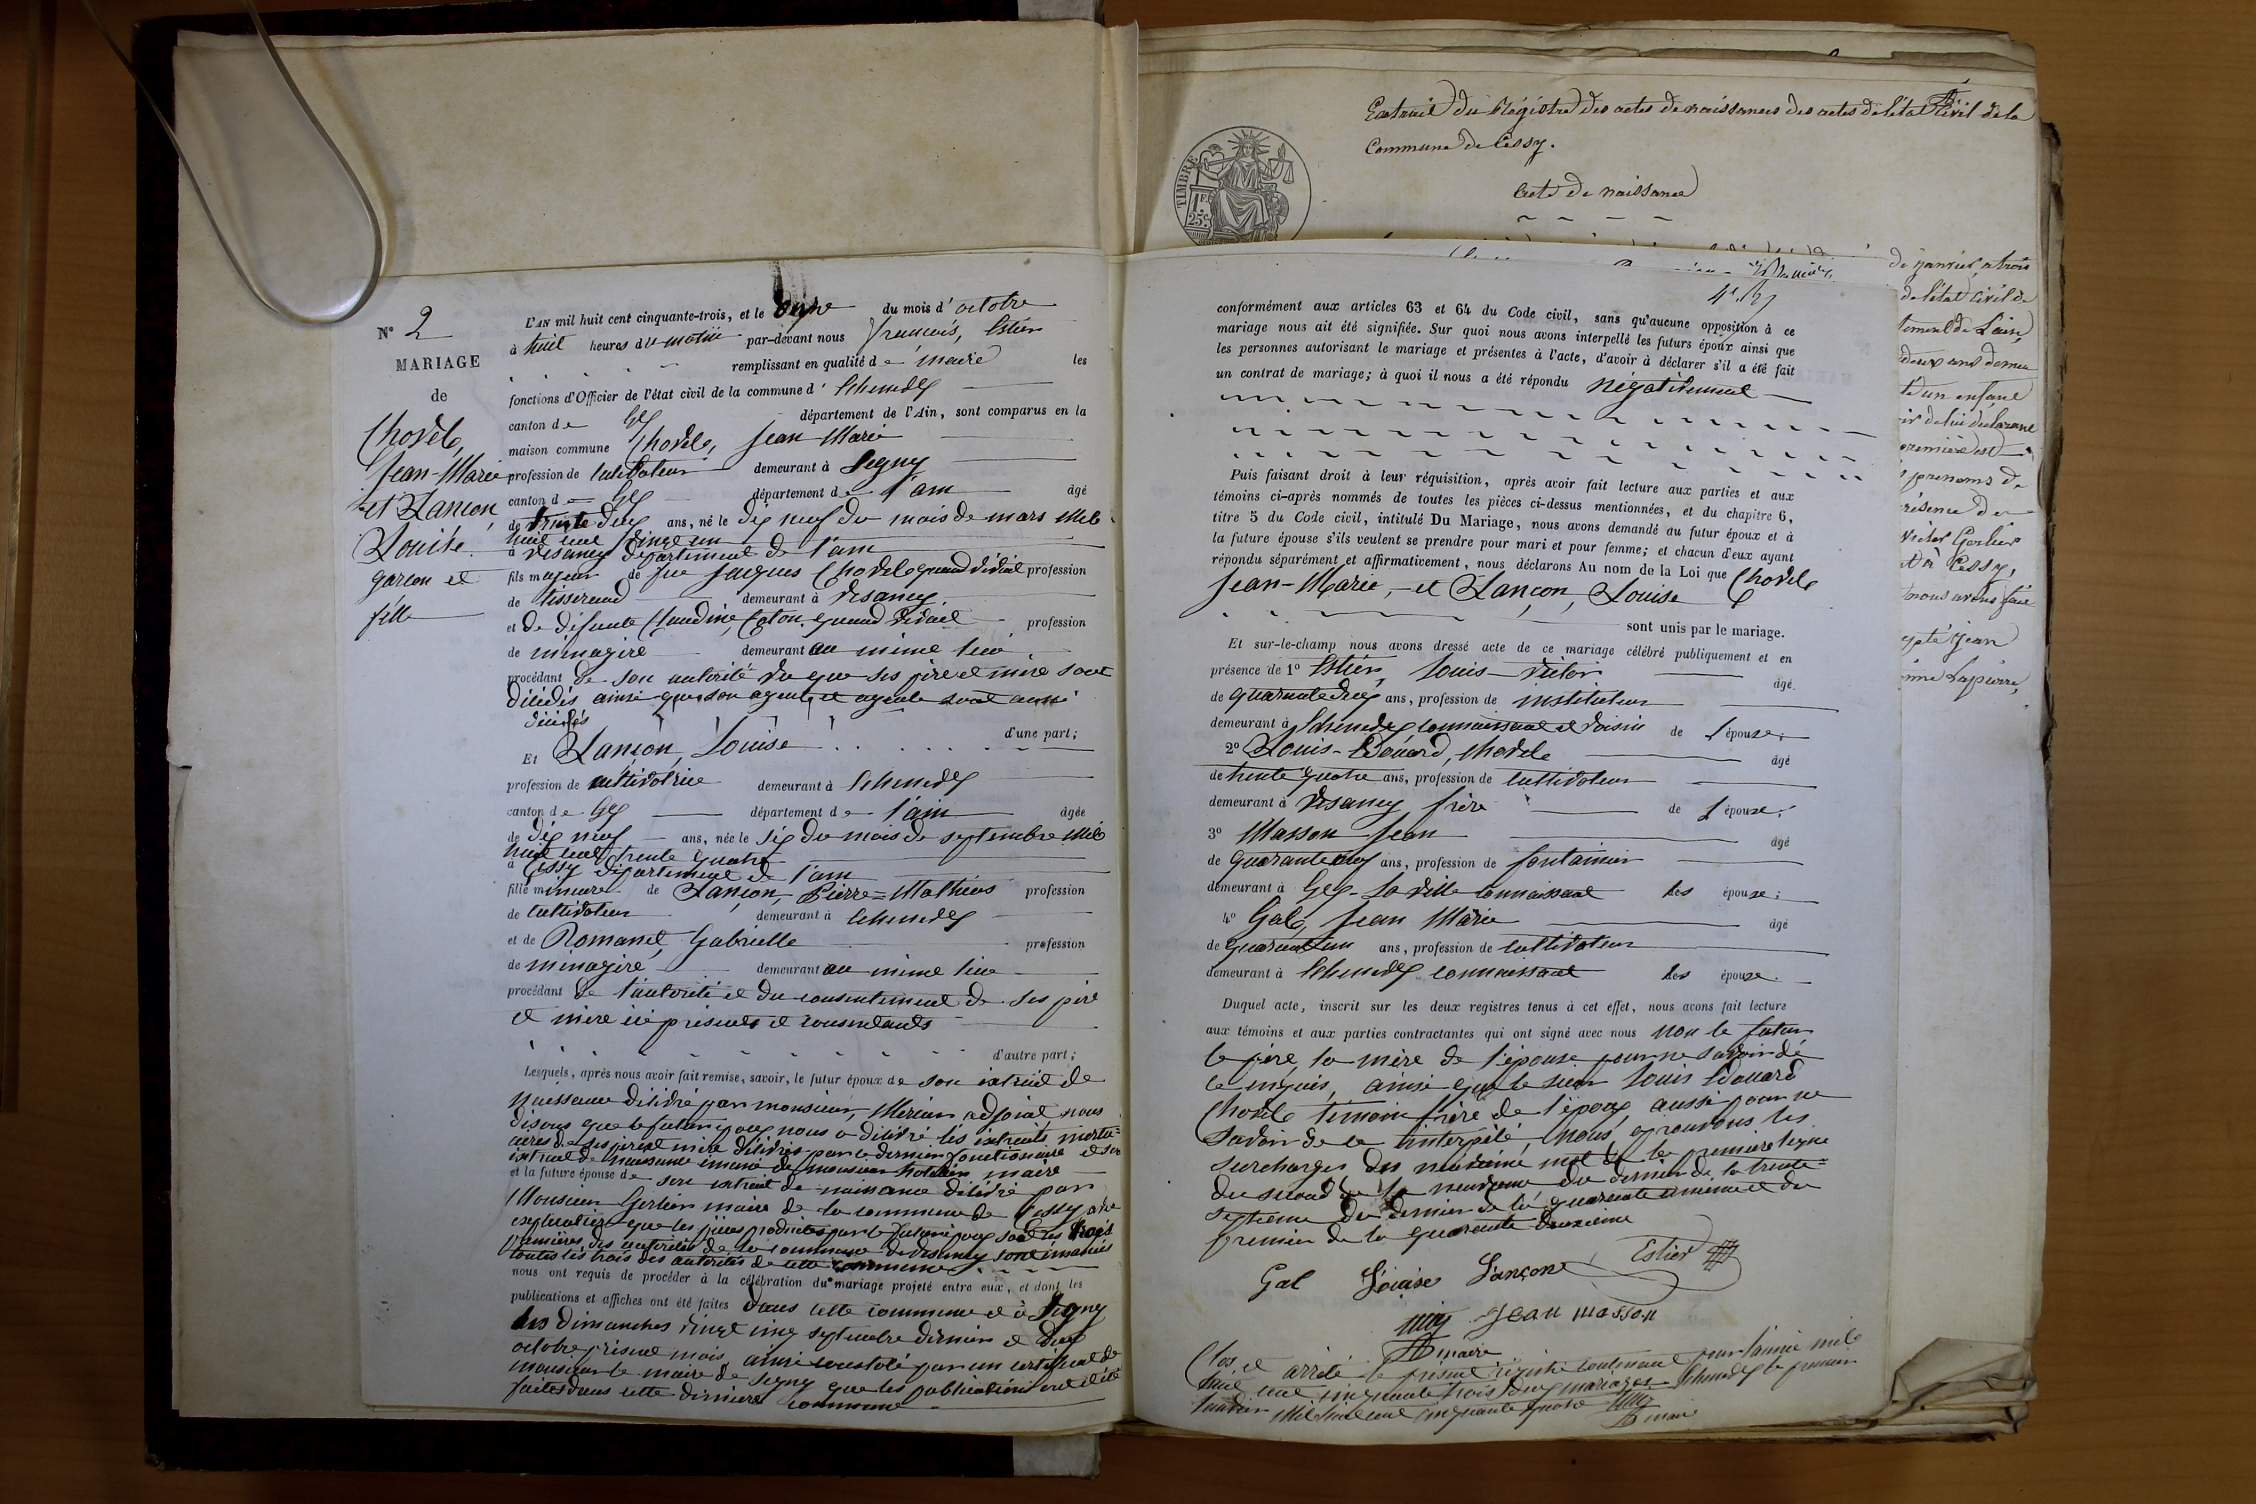 N° 2
MARIAGE
de
Chovel,
Jean-Marie
et Lançon,
Louise.
garçon et
fille
L'AN mil huit cent cinquante-trois, et le onze du mois d'octobre
à huit heures du matin par-devant nous François, Estier
remplissant en qualité de maire les
fonctions d'Officier de l'état civil de la commune d'Echenevex
canton de Gex département de l'Ain, sont comparus en la
maison commune Chovel, Jean Marie
profession de cultivateur demeurant à Segny
canton de Gex département de l'ain âgé
de trente deux ans, né le dix neuf du mois de mars mil
huit cent vingt un
à Vesancy département de l'ain
fils majeur de feu Jacques Chovel quand vivait profession
de tisserand demeurant à Vesancy
et de défunte Claudine, quand vivait profession
de ménagère demeurant au même lieu
procédant de son autorité vu que ses père et mère sont
décédés ainsi que son ayeul et ayeule sont aussi
décédés
d'une part;
Et Lançon, Louise
profession de cultivatrice demeurant à Echenevex
canton de Gex département de l'ain âgée
de dix neuf ans, née le six du mois de septembre mil
huit cent trente quatre
à Cessy département de l'ain
fille mineure de Lançon, Pierre=Mathieu profession
de cultivateur demeurant à Echenevex
et de Romanet, Gabrielle profession
de ménagère demeurant au même lieu
procédant de l'autorité et du consentement de ses père
et mère ici présents et consentants
d'autre part;
Lesquels, après nous avoir fait remise, savoir, le futur époux de son extrait de
naissance délivré par monsieur, adjoint nous
disons que le futur époux nous a délivré les extraits mortu=
aires de ses père et mère délivrés par le dernier fonctionnaire
extrait de naissance émané de monsieur maire
et la future épouse de son extrait de naissance délivré par
Monsieur Gerlier maire de la commune de Cessy
que les pièces produites par le futur époux sont les trois
premières des autorités de la commune de Vesancy sont émanées
toutes les trois des autorités de cette commune
nous ont requis de procéder à la célébration du mariage projeté entre eux, et dont les
publications et affiches ont été faites dans cette commune et à Segny
les dimanches vingt cinq septembre dernier et deux
octobre présent mois, ainsi constaté par un certificat de
monsieur le maire de Segny que les publications ont été
faites dans cette dernière commune
Extrait du Régistre des actes de naissances des actes de l'état Civil de la
Commune de Cessy.
Acte de naissance
TIMBRE
1F.
25c.
de janvier, a trois
de l'état civil de
tement de Lain,
deux ans demeu
té un enfant
oir de lui declarant
premier est
prenoms de
résence de
victor Gerlier
et à Cessy,
nous avons fait
epté Jean
Lapierre,
conformément aux articles 63 et 64 du Code civil, sans qu'aucune opposition à ce
mariage nous ait été signifiée. Sur quoi nous avons interpellé les futurs époux ainsi que
les personnes autorisant le mariage et présentes à l'acte, d'avoir à déclarer s'il a été fait
un contrat de mariage; à quoi il nous a été répondu négativement
Puis faisant droit à leur réquisition, après avoir fait lecture aux parties et aux
témoins ci-après nommés de toutes les pièces ci-dessus mentionnées, et du chapitre 6,
titre 5 du Code civil, intitulé Du Mariage, nous avons demandé au futur époux et à
la future épouse s'ils veulent se prendre pour mari et pour femme; et chacun d'eux ayant
répondu séparément et affirmativement, nous déclarons Au nom de la Loi que Chovel
Jean-Marie, et Lançon, Louise
sont unis par le mariage.
Et sur-le-champ nous avons dressé acte de ce mariage célébré publiquement et en
présence de 1° Estier, Louis-Victor âgé
de quarante deux ans, profession de instituteur
demeurant à Echenevex connaissant et voisin de l'épouse;
2° Louis-Edouard, Chovel âgé
de trente quatre ans, profession de cultivateur
demeurant à Vesancy frère de l'épouse;
3° Masson Jean âgé
de quarante ans, profession de fontainier
demeurant à Gex-la ville connaissant des épouse;
4° Gal, Jean Marie âgé
de quarante un ans, profession de cultivateur
demeurant à Echenevex connaissant des épouse
Duquel acte, inscrit sur les deux registres tenus à cet effet, nous avons fait lecture
aux témoins et aux parties contractantes qui ont signé avec nous non le futur
le père, la mère de l'épouse pour ne savoir de
ce enquis, ainsi que le sieur Louis Edouard
Chovel témoin frère de l'époux aussi pour ne
savoir de ce interpélé, nous aprouvons les
surcharges du mot de la première ligne
du second de la neuvième du dernier de la trente=
septième du dernier de la quarante unième et du
premier de la quarante deuxième
Gal Louise Lançon Estier
Jean Masson
maire
Clos et arrêté le présent régistre contenant pour l'année mil
huit cent cinquante trois deux mariages Echenevex le premier
janvier mil huit cent cinquante quatre
maire